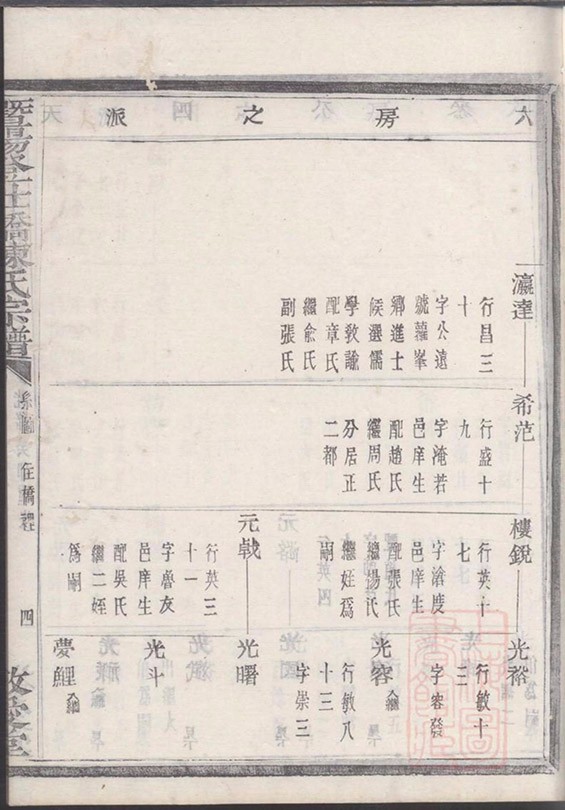 六房之派
瀛達
行昌三
十
字公遠
號蘿峯
鄉進士
候選儒
學教諭
配章氏
繼俞氏
副張氏
希范
行盛十
九
字淹若
邑庠生
配趙氏
繼周氏
分居正
二都
樓銳
行英十
七
字滄度
邑庠生
配張氏
繼楊氏
繼姪爲
嗣
元戟
行英三
十一
字魯友
邑庠生
配吳氏
繼二姪
爲嗣
光裕
行敏十
三
字容發
光容 入繼
行敏八
十三
字崇三
光曙
光斗
夢鯉 入繼
陳氏宗譜
四